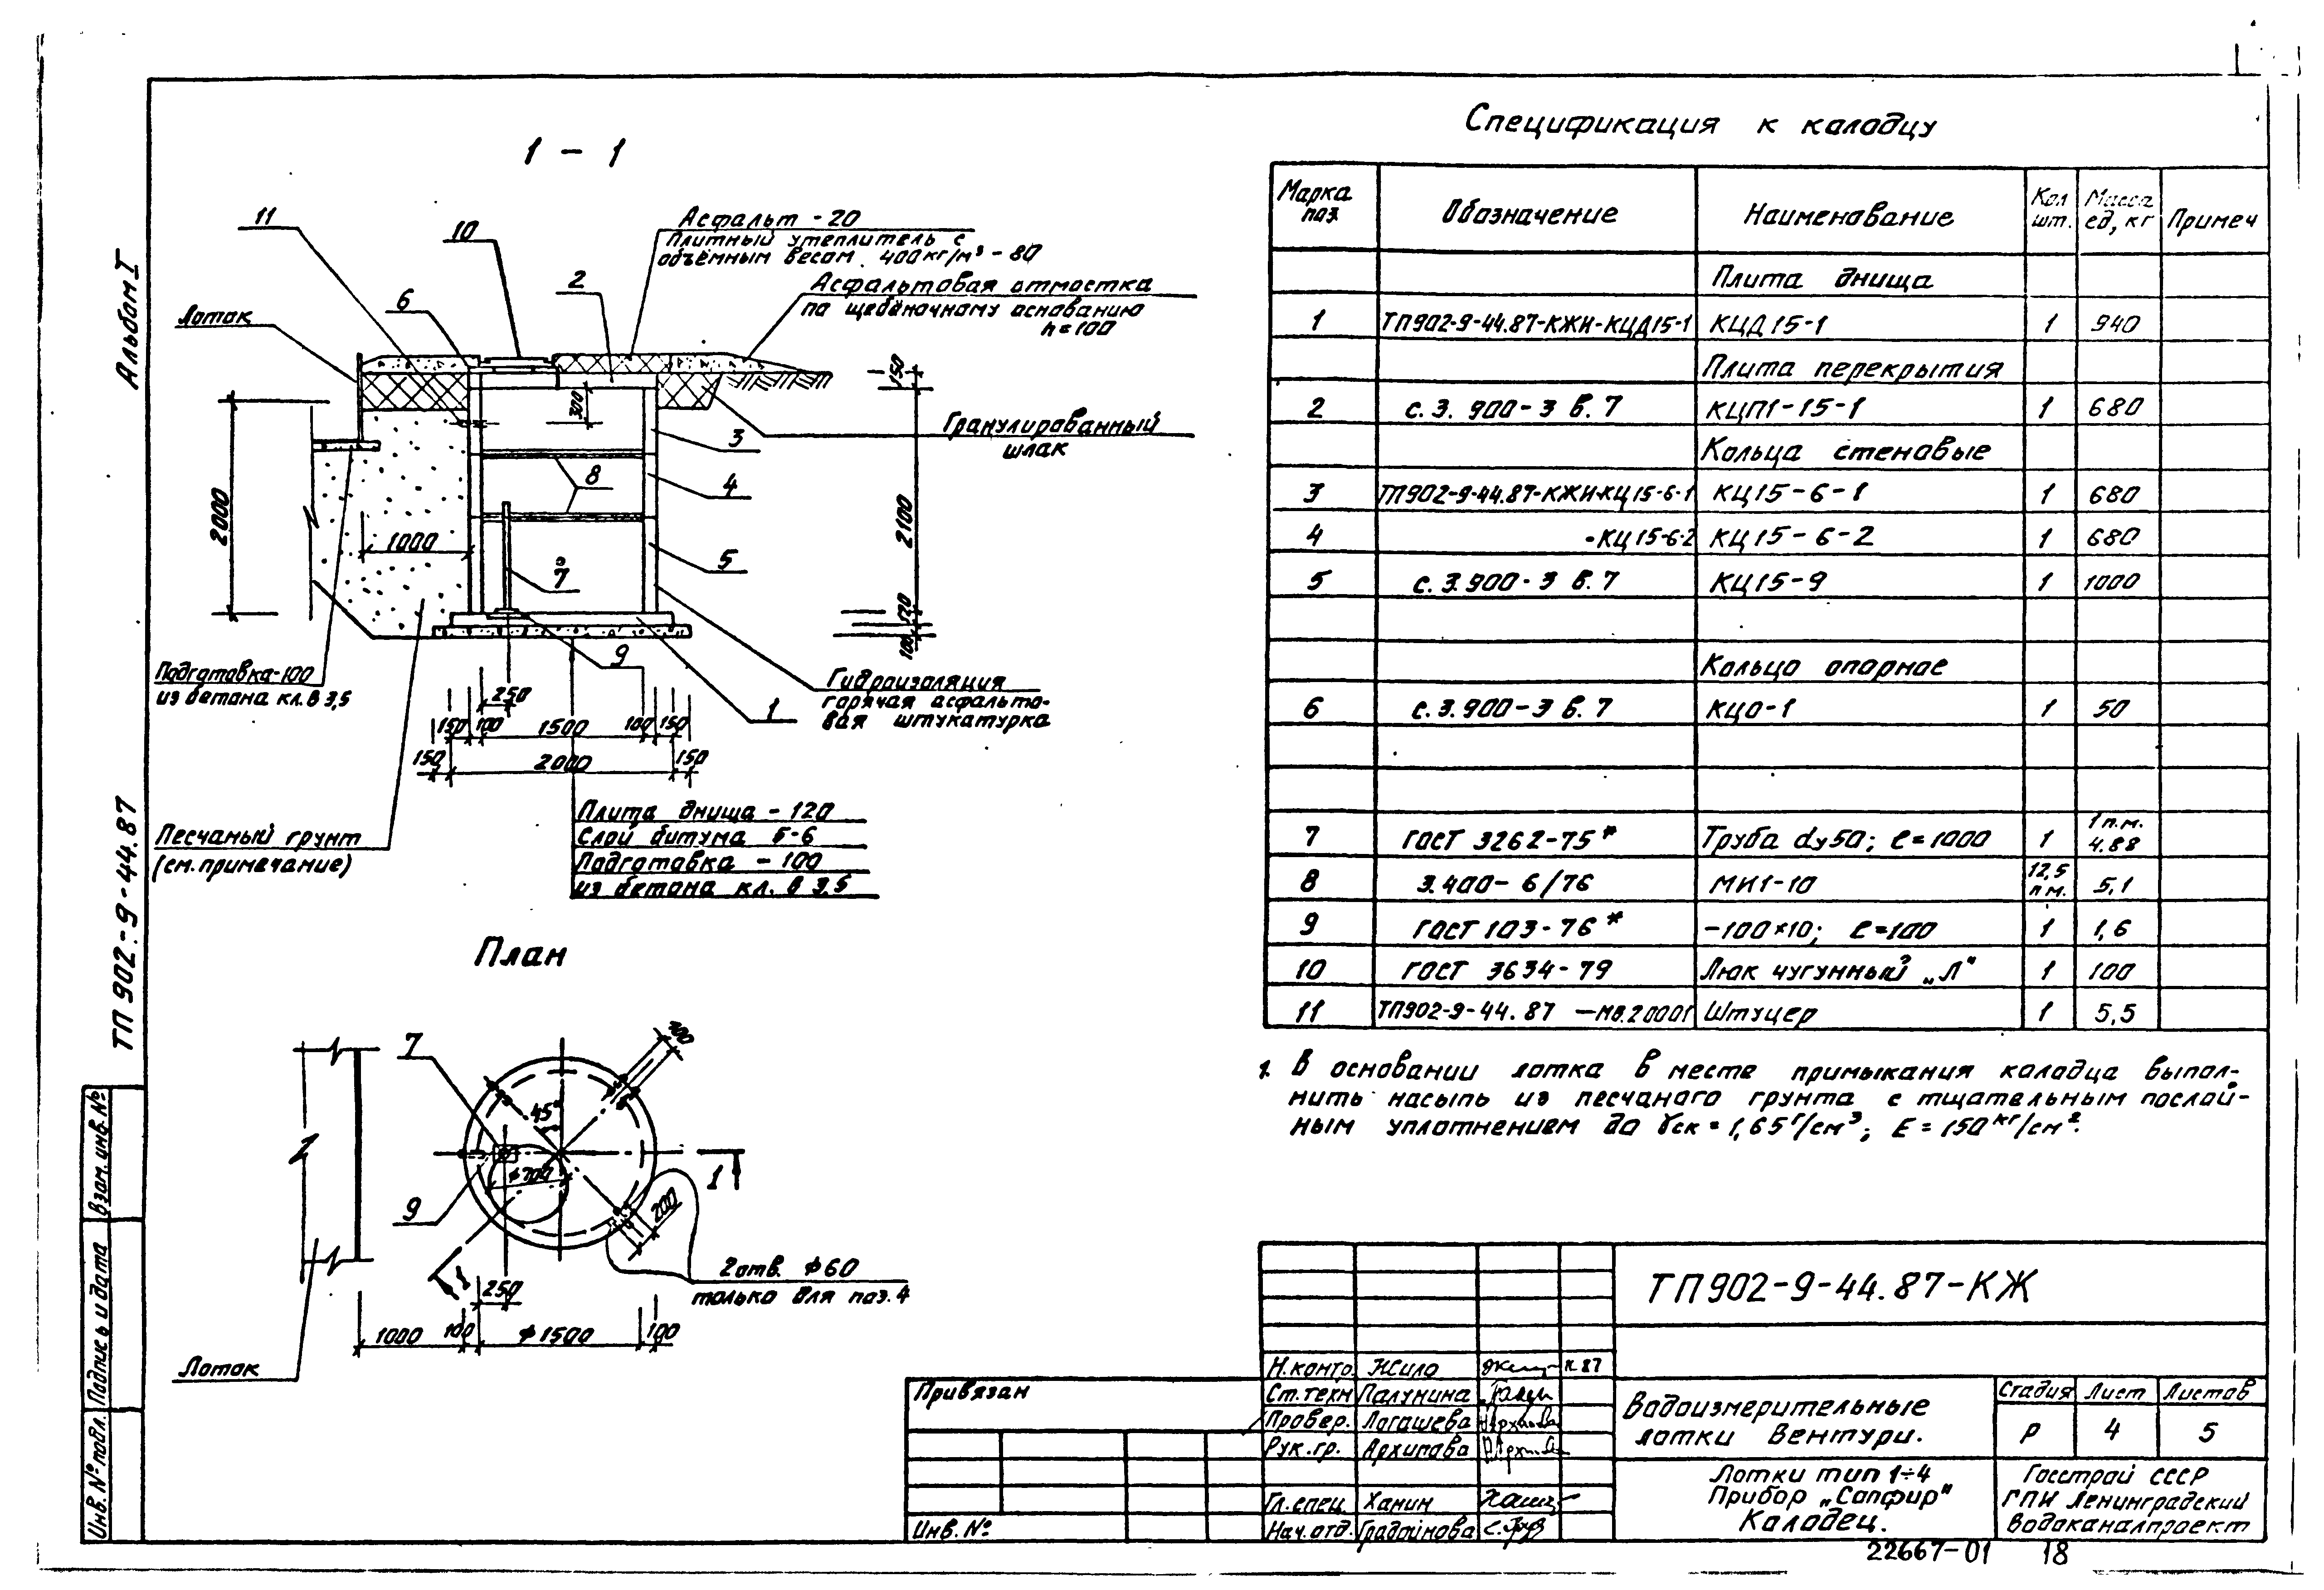 Альбом I
ТП 902-9-44.87
Инв. № подл.
Подпись и дата
Взам. инв. №
1 - 1
11
10
6
2
Лоток
Асфальт - 20
Плитный утеплитель с
объёмным весом 400кг/м³ - 80
Асфальтовая отмостка
по щебёночному основанию
h=100
150
300
Гранулированный
шлак
3
4
8
5
7
2000
1000
2100
120
100
9
1
Подготовка-100
из бетона кл. В 3,5
Гидроизоляция
горячая асфальто-
вая штукатурка
250
150 100 1500 100 150
150 2000 150
Плита днища - 120
Слой битума Б-6
Подготовка - 100
из бетона кл. В 3,5
Песчаный грунт
(см. примечание)
План
7
200
45°
ф700
1
9
200
1
2 отв. ф60
только для поз. 4
250
1000 100 ф1500 100
Лоток
Спецификация к колодцу
Марка поз. Обозначение Наименование Кол шт. Масса ед, кг Примеч
Плита днища
1 ТП902-9-44.87-КЖИ-КЦД15-1 КЦД15-1 1 940
Плита перекрытия
2 с. 3. 900-3 в. 7 КЦП1-15-1 1 680
Кольца стеновые
3 ТП902-9-44.87-КЖИ-КЦ15-6-1 КЦ15-6-1 1 680
4 -КЦ15-6-2 КЦ15-6-2 1 680
5 с. 3.900-3 в. 7 КЦ15-9 1 1000
Кольцо опорное
6 с. 3.900-3 в. 7 КЦО-1 1 50
7 ГОСТ 3262-75* Труба dу50; ℓ=1000 1 1 п.м. 4,88
8 3.400-6/76 МИ1-10 12,5 п.м. 5,1
9 ГОСТ 103-76* -100×10; ℓ=100 1 1,6
10 ГОСТ 3634-79 Люк чугунный „Л" 1 100
11 ТП902-9-44.87 -МВ.20001 Штуцер 1 5,5
1. В основании лотка в месте примыкания колодца выпол-
нить насыпь из песчаного грунта с тщательным послой-
ным уплотнением до γск = 1,65 г/см³; Е = 150 кг/см².
ТП902-9-44.87-КЖ
Н.контр. Жило 87
Ст.техн Палунина
Провер. Логашева
Рук.гр. Архипова
Гл.спец Ханин
Нач.отд. Градойнова
Привязан
Инв. №
Водоизмерительные
лотки Вентури.
Стадия Лист Листов
Р 4 5
Лотки тип 1÷4
Прибор „Сапфир"
Колодец.
Госстрой СССР
ГПИ Ленинградский
Водоканалпроект
22667-01 18